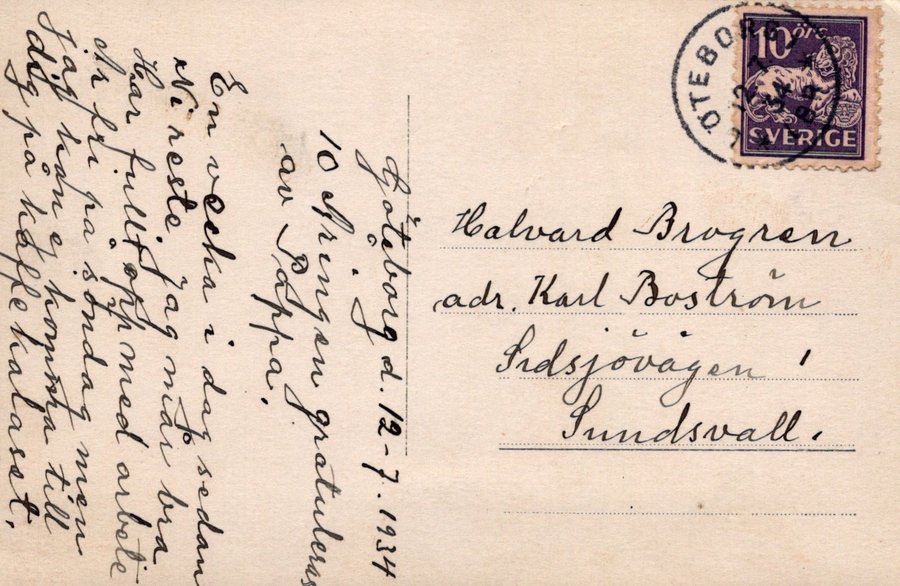 Göteborg d. 12-7. 1934
10 Åringen gratuleras
av Pappa.
En vecka i dag sedan
Ni reste. jag mår bra
Har fullt opp med arbete
Är fri på söndag men
jag kan ej komma till
dig på kaffekalaset.
10 öre
SVERIGE
GÖTEBORG 1
12 7
34
LBR
Halvard Brogren
adr. Karl Boström
Sidsjövägen 1
Sundsvall.